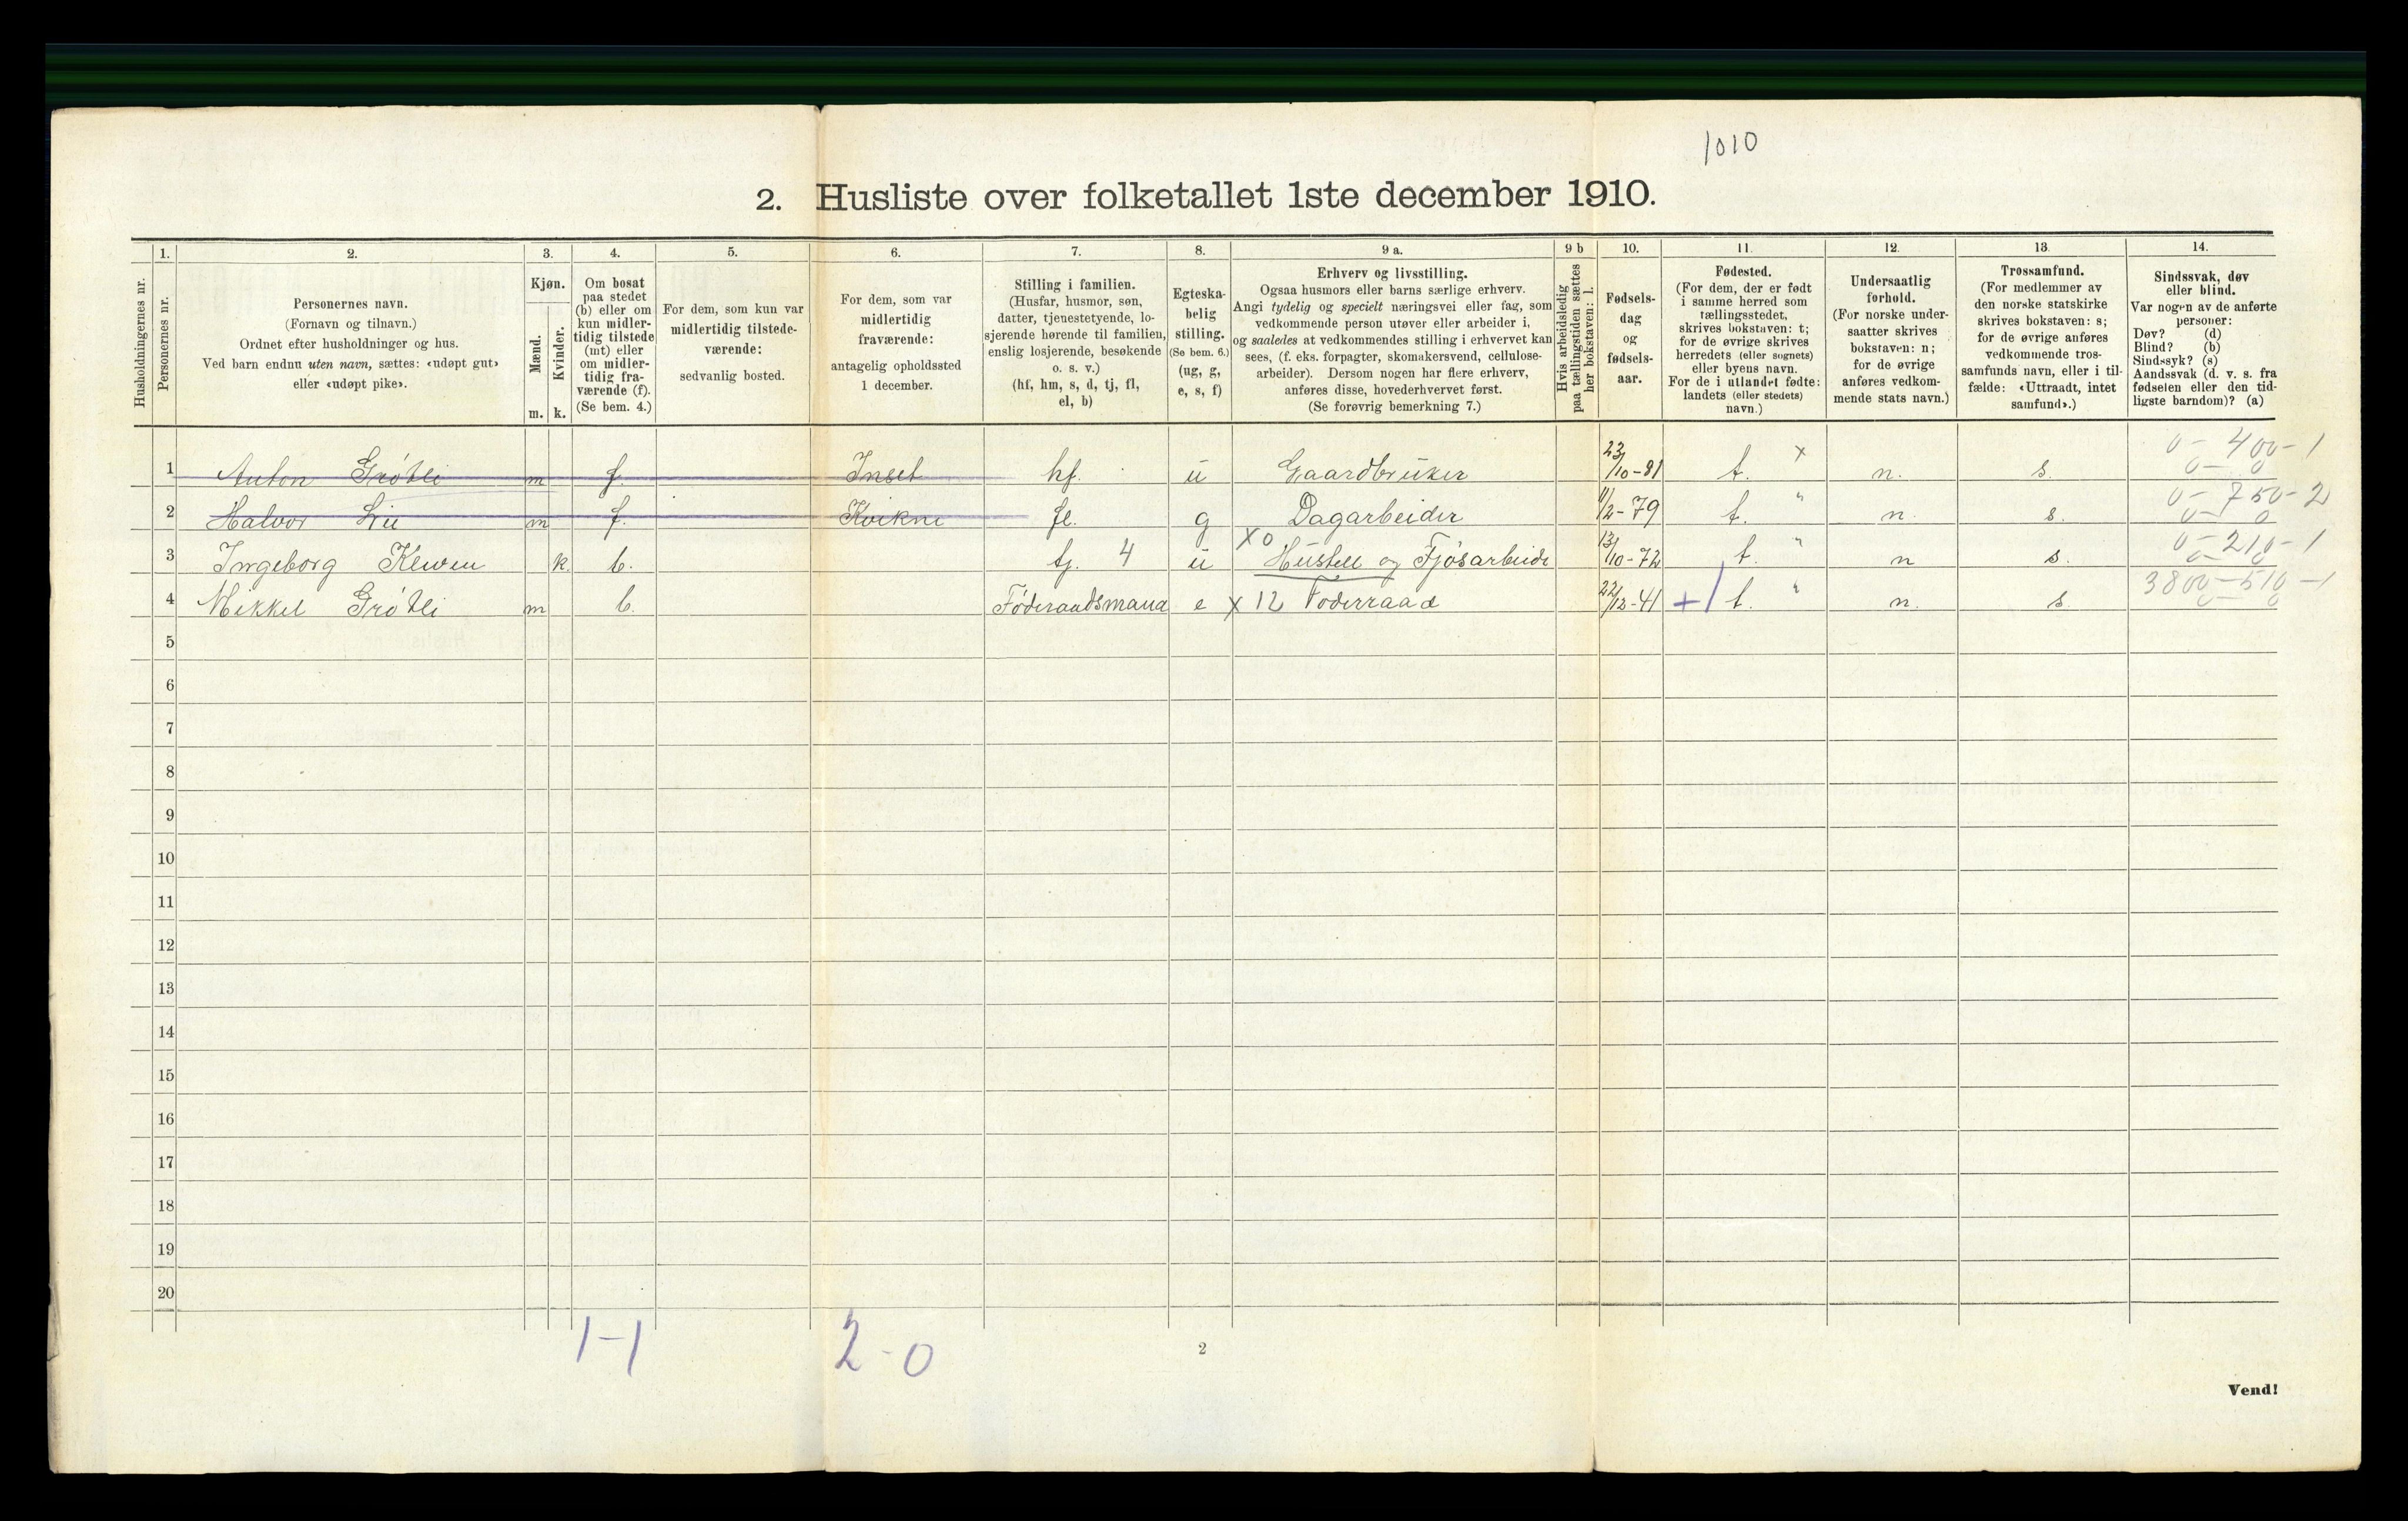 1010
2. Husliste over folketallet 1ste december 1910.
Husholdningernes nr.
1.
Personernes nr.
2.
Personernes navn.
(Fornavn og tilnavn.)
Ordnet efter husholdninger og hus.
Ved barn endnu uten navn, sættes: «udøpt gut»
eller «udøpt pike».
3.
Kjøn.
Mænd.
Kvinder.
m. k.
4.
Om bosat
paa stedet
(b) eller om
kun midler-
tidig tilstede
(mt) eller
om midler-
tidig fra-
værende (f).
(Se bem. 4.)
5.
For dem, som kun var
midlertidig tilstede-
værende:
sedvanlig bosted.
6.
For dem, som var
midlertidig
fraværende:
antagelig opholdssted
1 december.
7.
Stilling i familien.
(Husfar, husmor, søn,
datter, tjenestetyende, lo-
sjerende hørende til familien,
enslig losjerende, besøkende
o. s. v.)
(hf, hm, s, d, tj, fl,
el, b)
8.
Egteska-
belig
stilling.
(Se bem. 6.)
(ug, g,
e, s, f)
9 a.
Erhverv og livsstilling.
Ogsaa husmors eller barns særlige erhverv.
Angi tydelig og specielt næringsvei eller fag, som
vedkommende person utøver eller arbeider i,
og saaledes at vedkommendes stilling i erhvervet kan
sees, (f. eks. forpagter, skomakersvend, cellulose-
arbeider). Dersom nogen har flere erhverv,
anføres disse, hovederhvervet først.
(Se forøvrig bemerkning 7.)
9 b
Hvis arbeidsledig
paa tællingstiden sættes
her bokstaven: l.
10.
Fødsels-
dag
og
fødsels-
aar.
11.
Fødested.
(For dem, der er født
i samme herred som
tællingsstedet,
skrives bokstaven: t;
for de øvrige skrives
herredets (eller sognets)
eller byens navn.
For de i utlandet fødte:
landets (eller stedets)
navn.)
12.
Undersaatlig
forhold.
(For norske under-
saatter skrives
bokstaven: n;
for de øvrige
anføres vedkom-
mende stats navn.)
13.
Trossamfund.
(For medlemmer av
den norske statskirke
skrives bokstaven: s;
for de øvrige anføres
vedkommende tros-
samfunds navn, eller i til-
fælde: «Uttraadt, intet
samfund».)
14.
Sindssvak, døv
eller blind.
Var nogen av de anførte
personer:
Døv? (d)
Blind? (b)
Sindssyk? (s)
Aandssvak (d. v. s. fra
fødselen eller den tid-
ligste barndom)? (a)
1 Anton Grötli m f. Inset hf. u Gaardbruker 23/10-81 t. x n. s. 0-400-1
0-0
2 Halvor Lie m f. Kvikne fl. g Dagarbeider 11/2-79 t. " n. s. 0-750-2
0-0
3 Ingeborg Kleven k. b. tj. 4 u x0 Hustell og Fjösarbeide 13/10-72 t. " n s. 0-210-1
0-0
4 Mikkel Grötli m b. Föderaadsmand e x 12 Foderraad 22/12-41 +1 t. " n. s. 3800-510-1
0-0
5
6
7
8
9
10
11
12
13
14
15
16
17
18
19
20
1-1 2-0
2
Vend!